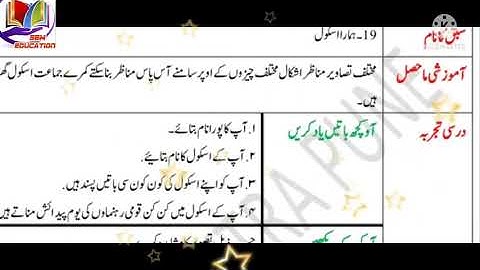 SBH
EDUCATION
سبق کا نام
19۔ ہمارا اسکول
آموزشی ماحصل
مختلف تصاویر مناظر اشکال مختلف چیزوں کے اوپر سامنے آس پاس مناظر بنا سکتے کمرے جماعت اسکول گھر
ہیں۔
درسی تجربہ
آؤ کچھ باتیں یاد کریں
۱۔ آپ کا پورا نام بتائے۔
۲۔ آپ کے اسکول کا نام بتایئے۔
۳۔ آپ کو اپنے اسکول کی کون کون سی باتیں پسند ہیں۔
۴۔ آپ کے اسکول میں کن کن قومی رہنماوں کی یوم پیدائش مناتے ہیں
PUNE